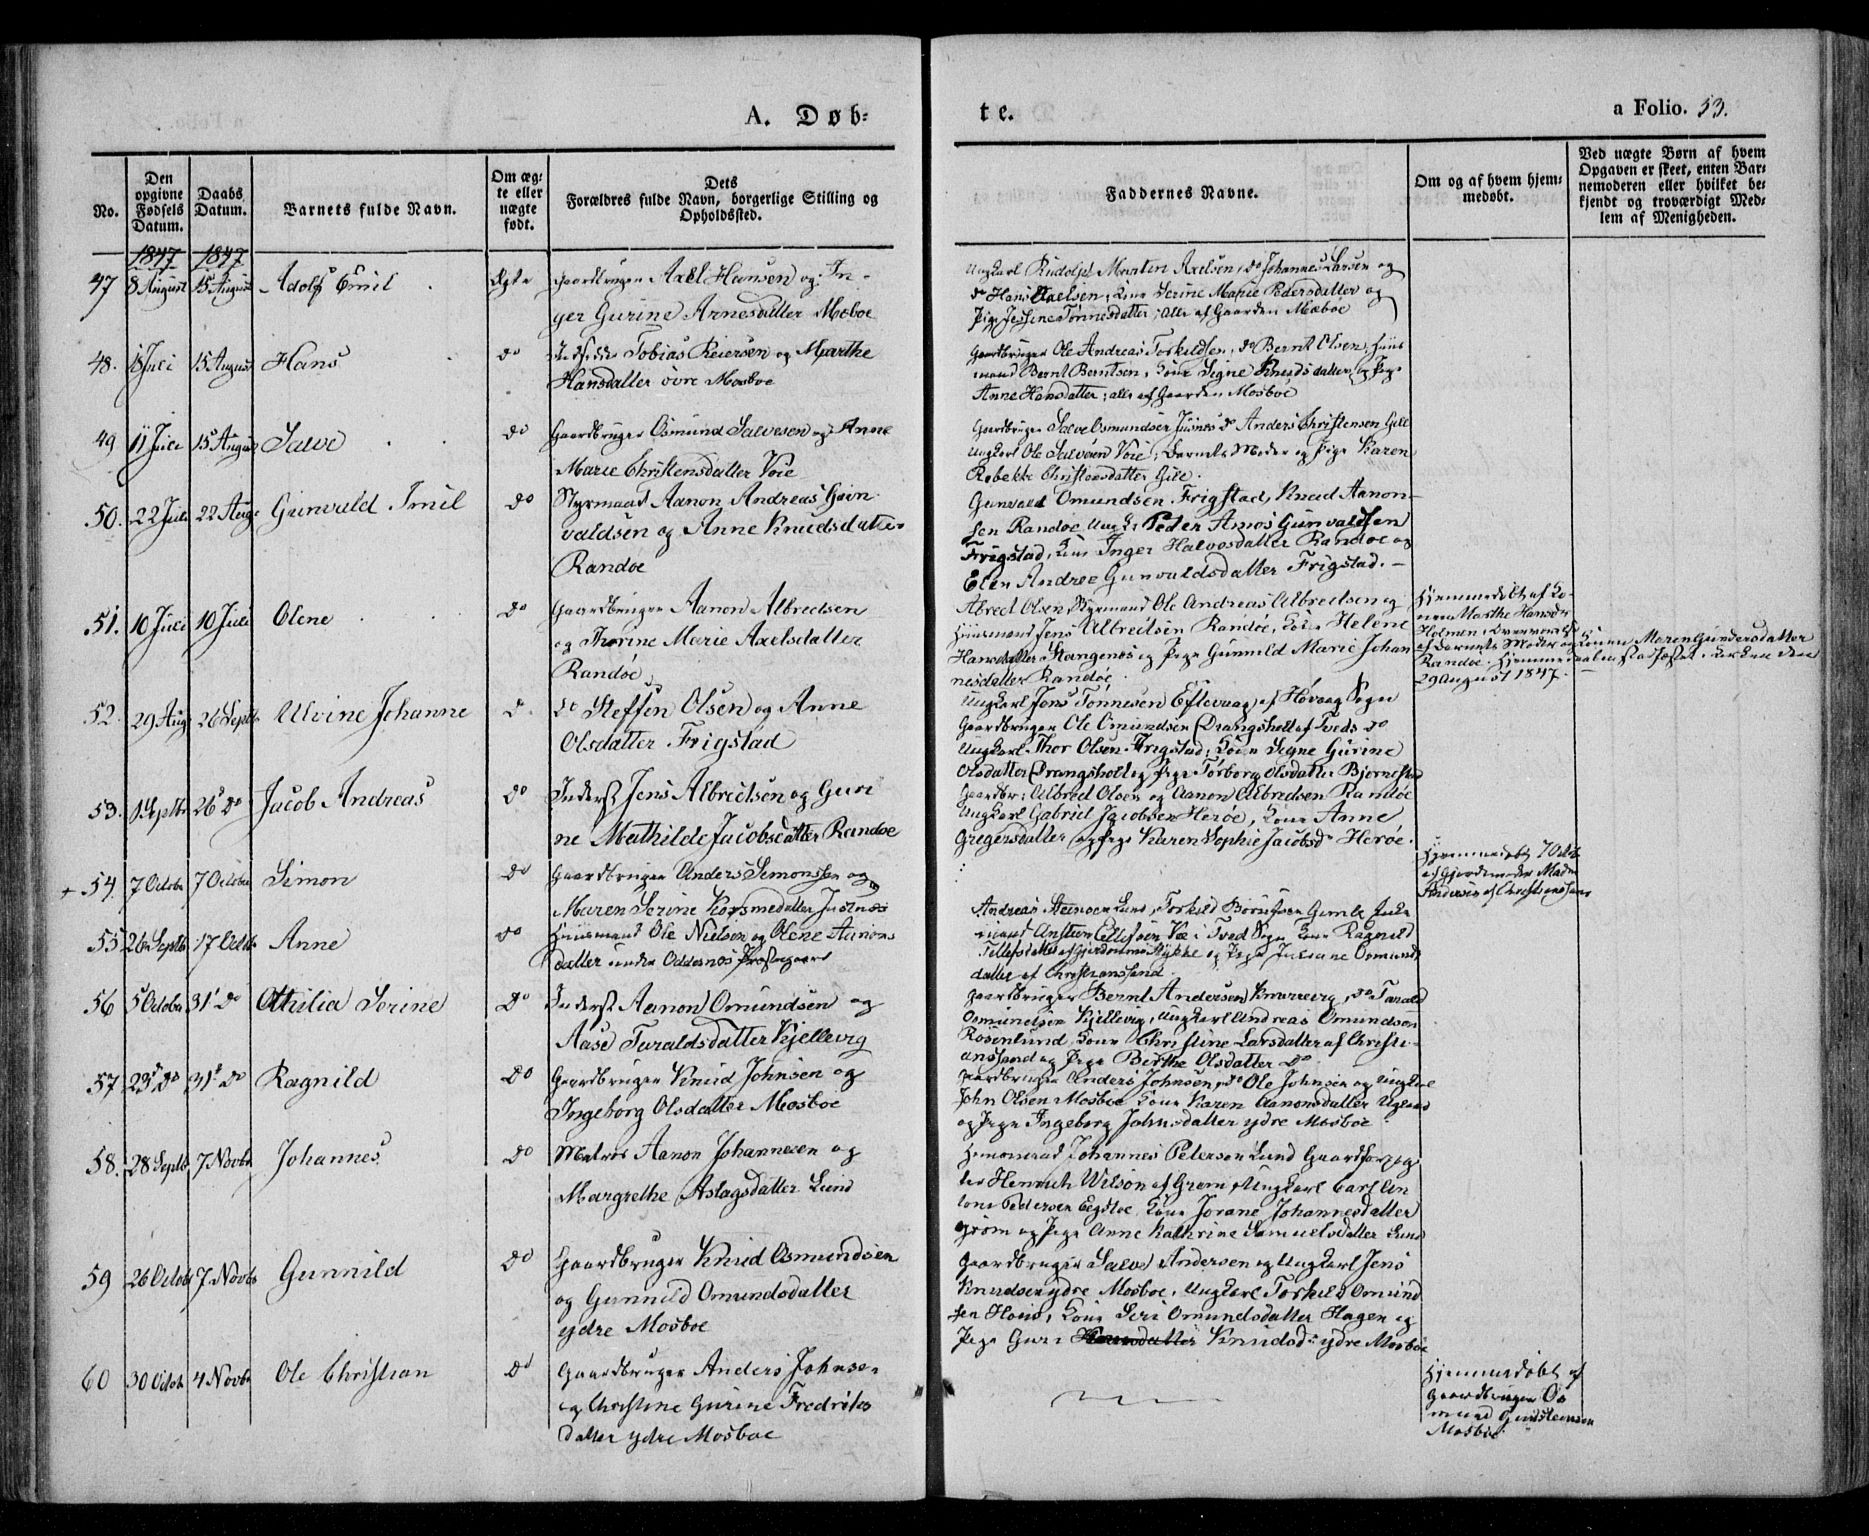 A. Døb-
te.
a Folio. 53.
No.
Den opgivne Fødsels Datum.
Daabs Datum.
Barnets fulde Navn.
Om æg-
te eller
uægte
født.
Dets
Forældres fulde Navn, borgerlige Stilling og
Opholdssted.
Faddernes Navne.
Om og af hvem hjem-
medøbt.
Ved uægte Børn af hvem
Opgaven er skeet, enten Bar-
nemoderen eller hvilket be-
kjendt og troværdigt Med-
lem af Menigheden.
1847 1847
47 8 August 15 August Adolf Emil Ægte Gaardbruger Axel Hansen og In-
ger Gurine Arnesdatter Mæboe
Ungkarl Rudolph Martin Axelsen, do Johannes Larsen og
do Hans Axelsen, Kone Serine Marie Pedersdatter og
Pige Jessine Tønnesdatter; alle af Gaarden Mæboe
48. 18 Juli 15 August Hans do Inderst Tobias Reiersen og Marthe
Hansdatter øvre Mosboe
Gaardbruger Ole Andreas Torkildsen, do Bernt Olsen, Huus
mand Bernt Berntsen, Kone Signe Knudsdatter, og Pige
Anne Hansdatter; alle af Gaarden Mosboe
49 11 Juli 15 August Salve do Gaardbruger Osmund Salvesen og Anne
Marie Christensdatter Voie
Gaardbruger Salve Osmundsen Justnes do Anders Christensen Gill
Ungkarl Ole Salvesen Voie, Barnets Moder og Pige Karen
Rebekke Christensdatter Gill.
50. 22 Juli 22 Aug Gunvald Emil do Styrmand Aanon Andreas Gun-
valdsen og Anne Knudsdatter
Randøe
Gunvald Omundsen Frigstad, Knud Aanon-
sen Randøe Ungk. Peder Amos Gunvaldsen
Frigstad, Kone Inger Halvosdatter Randøe og
Elen Andree Gunvaldsdatter Frigstad.
51. 10 Juli 10 Juli Olene do Gaardbruger Aanon Albredsen
og Thorine Marie Axelsdatter
Randøe
Albred Olsen Styrmand Ole Andreas Albredsen og
Huusmand Jens Albredsen Randøe, Kone Helene
Hansdatter Stangenes og Pige Gunnild Marie Johan
nesdatter Randøe.
Hjemmedøbt af Ko-
nen Marthe Hansdr
Holmen, Overværelse
af Barnets Moder og Konen Maren Gundersdatter
Randøe. Hjemmedaaben stadfæstet i Kirken den
29 August 1847.
52. 29 Aug 26 Septb. Alvine Johanne do do Steffen Olsen og Anne
Olsdatter Frigstad
Ungkarl Jens Tønnesen Eftevaag af Høvaag Sogn
Gaardbruger Ole Omundsen Drangsholt af Tveds do
Ungkarl Thor Olsen Frigstad; Kone Signe Gurine
Olsdatter Drangsholt og Pige Torborg Olsdatter Bjørnestad
53. 1 Septbr 26 do Jacob Andreas do Inderst Jens Albredsen og Guri
ne Mathilde Jacobsdatter Randøe
Gaardbr: Albred Olsen og Aanon Albredsen Randøe
Ungkarl Gabriel Jacobsen Herøe, Kone Anne
Gregersdatter og Pige Karen Sophie Jacobsdr Herøe.
+ 54. 7 Octobr 7 Octobr Simon do Gaardbruger Anders Simonsen og
Maren Serine Kosmedatter Justnes
Hjemmedøbt 7 Octb
af Gjordemoder Madm
Andersen af Christianssand
55 26 Septb 17 Octbr Anne do Huusmand Ole Nielsen og Olene Aanons
datter under Oddesnes Præstegaard
Andreas Steensen Lund, Torkild Børufsen Gimle Enke
mand Ansteen Ellefsen Væ i Tved Sogn Kone Ragnild
Tellefsdatter af Gjerdemos Stykke og Pige Juliane Osmunds
datter af Christianssand.
56 5 Octobr 31 do Othilia Serine do Inderst Aanon Omundsen og
Aase Taraldsdatter Kjellevig
Gaardbruger Bernt Andersen Knarrevig, do Tarald
Osmundsen Kjellevig, Ungkarl Andreas Omundsen
Rosenlund, Kone Christine Larsdatter af Christi-
anssand og Pige Berthe Olsdatter do
57 23 do 31 do Ragnild do Gaardbruger Knud Johnsen og
Ingeborg Olsdatter Mosboe
Gaardbruger Anders Johnsen, do Ole Johnsen og Ungkarl
John Olsen Mosboe Kone Karen Aanonsdatter Ugland
og Pige Ingeborg Johnsdatter ydre Mosboe
58. 28 Septb 7 Novbr Johannes do Matros Aanon Johannesen og
Margrethe Aslagsdatter Lund
Huusmand Johannes Petersen Lund Gaardforpag
ter Henrich Wilson af Grøm, Ungkarl Carl An
tons Pedersen Egstoe Kone Jorane Johannesdatter
Grøm og Pige Anne Kathrine Samuelsdatter Lund
59 26 Octob 7 Novbr Gunnild do Gaardbruger Knud Osmundsen
og Gunnild Omundsdatter
ydre Mosboe
Gaardbruger Salve Andersen og Ungkarl Jens
Knudsen ydre Mosboe, Ungkarl Torkild Omund
sen Hous, Kone Siri Omundsdatter Hagen og
Pige Guri Knudsdr ydre Mosboe
60 30 Octob 4 Novbr Ole Christian do Gaardbruger Anders Johnsen
og Christine Gurine Fredriks
datter ydre Mosboe
Hjemmedøbt af
Gaardbruger Os
mund Gundsteensen
Mosboe